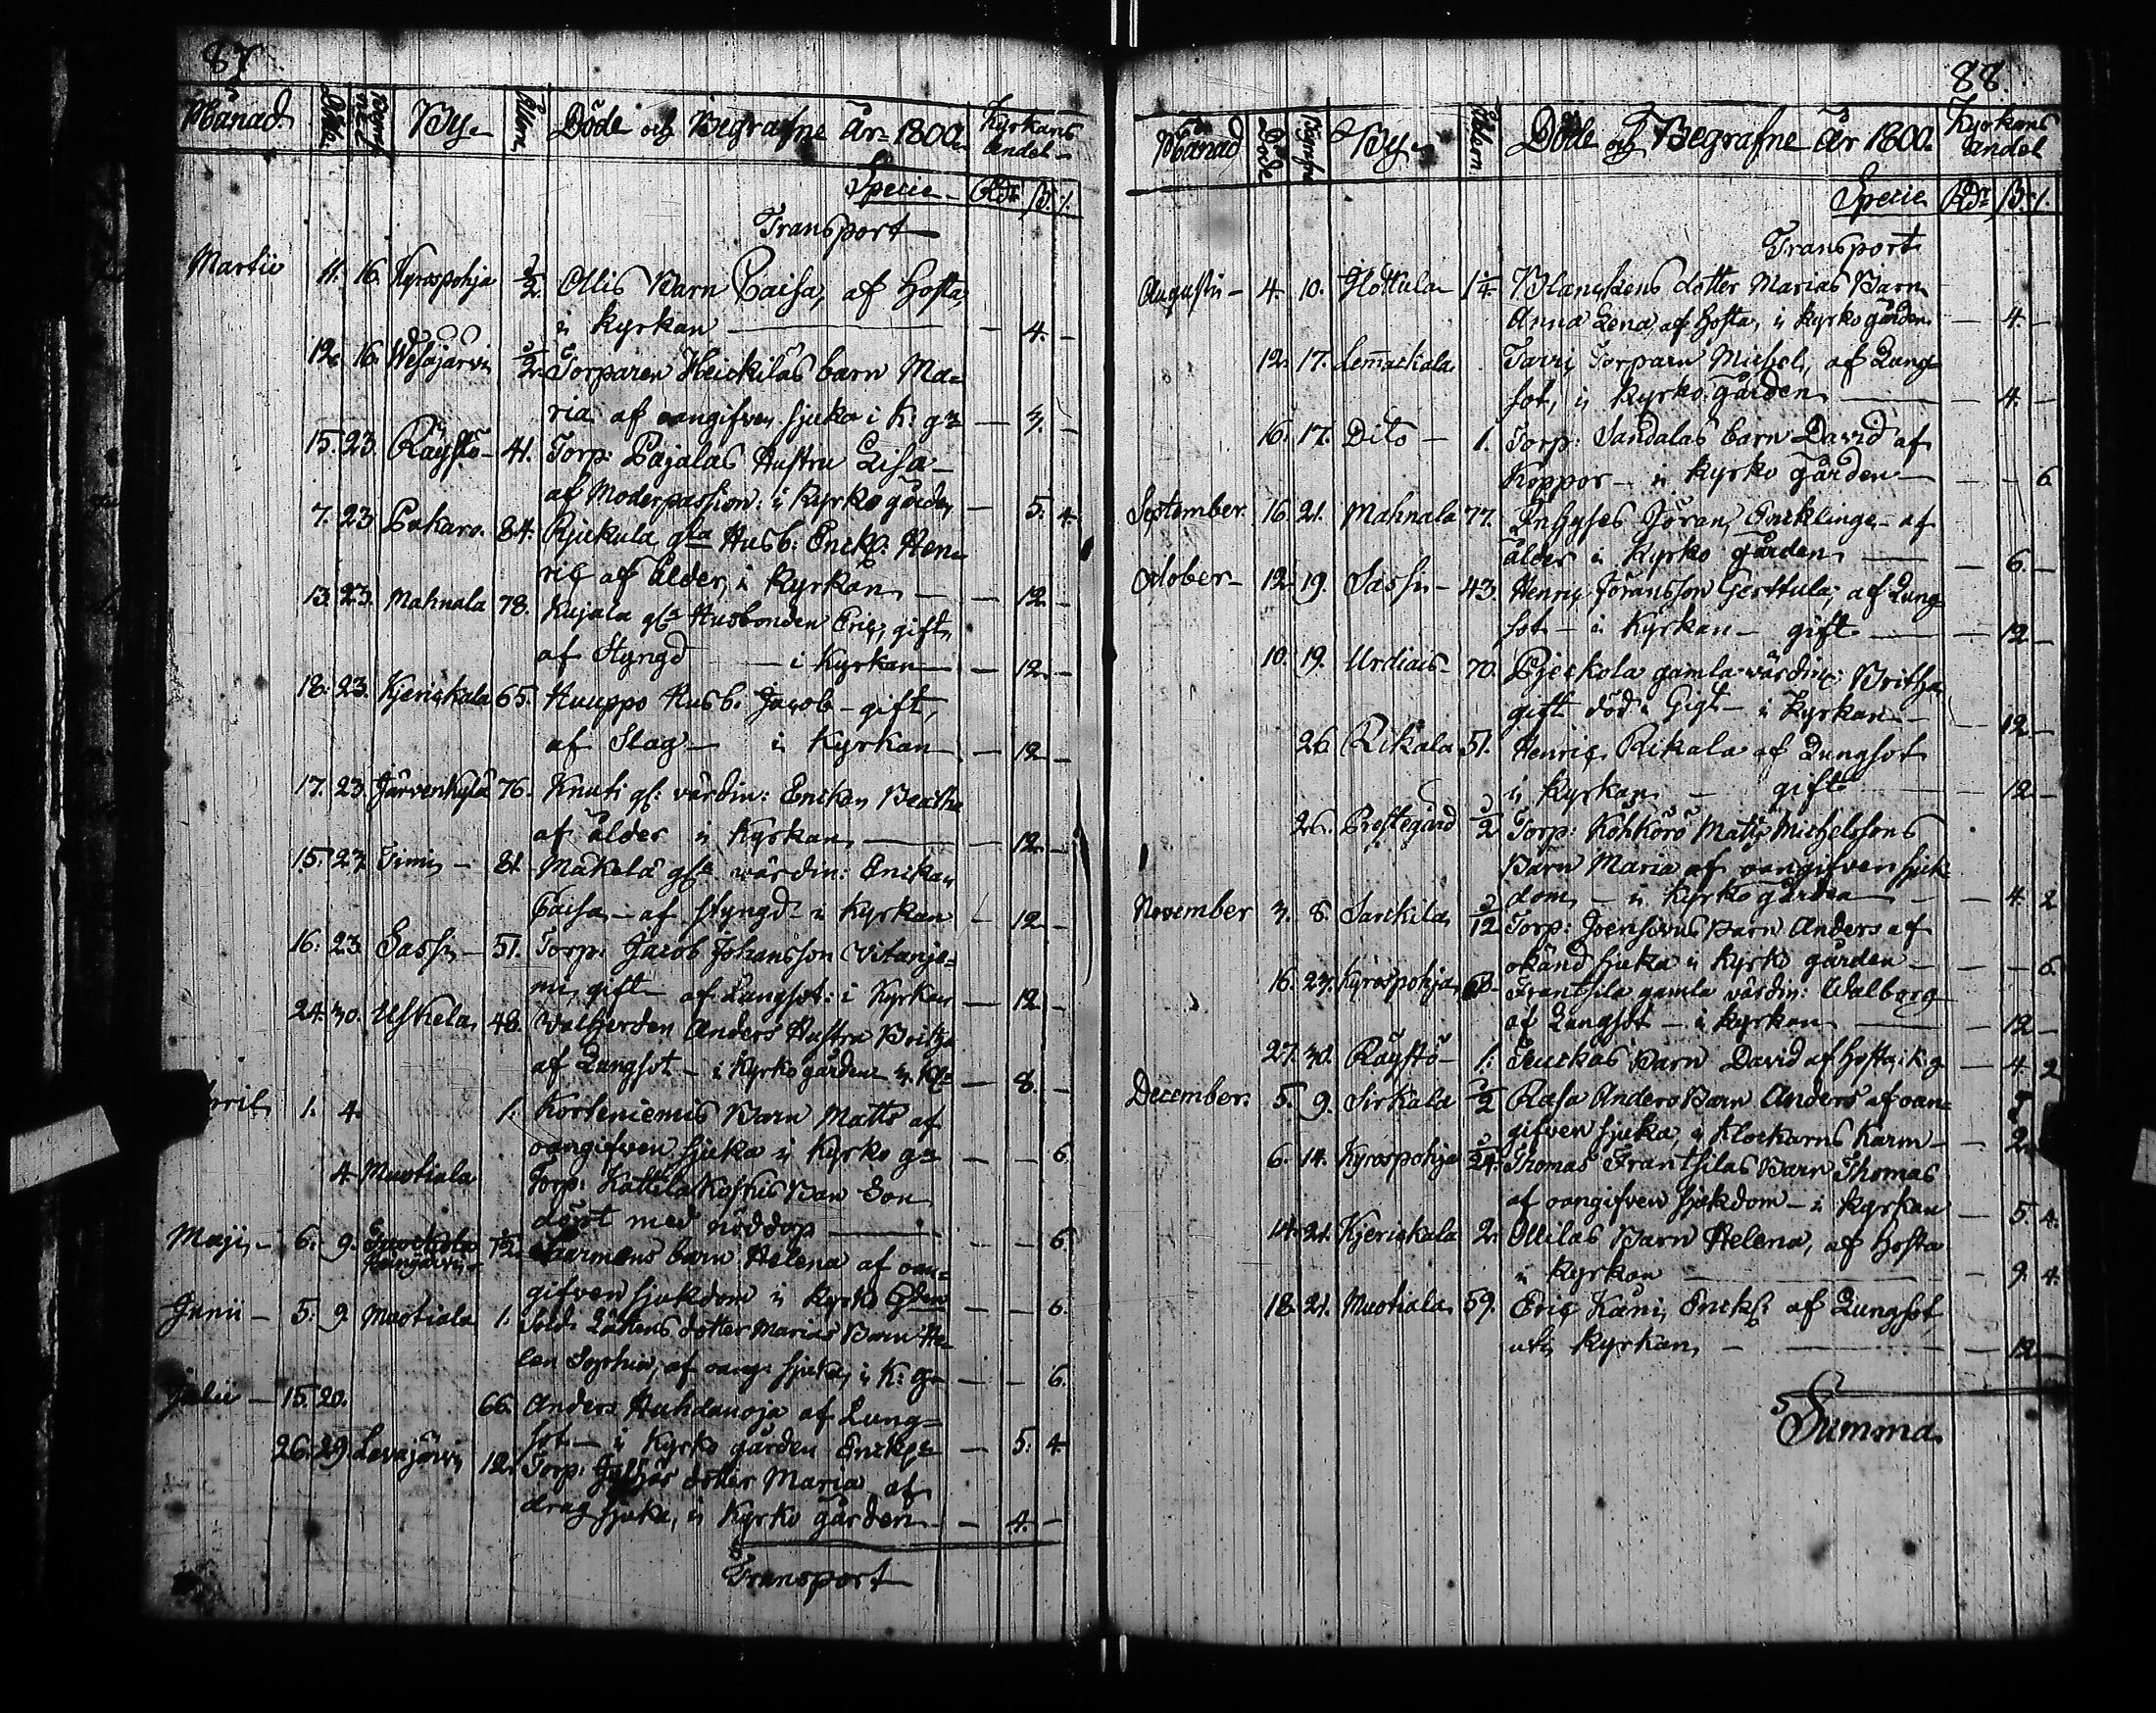 87
Månad Döde Begrafne By Åldern Döde och Begrafne År 1800. Kyrkans andel
Specie Rdr ß. /.
Transport
Martii 11. 16. Kyrospohja 3/2 Ollis Barn Caisa, af Hosta,
i kyrkan — 4. —
12. 16. Wesajärvi Torparen Heickiläs barn Ma=
ria af oangifven sjuka i K: g — 3. —
15. 23. Räystö 41. Torp: Pajalas Hustru Lisa
af Moderpassion: i kyrkogården — 5. 4.
7. 23 Pakaro. 84. gla Husb: Enckl: Hen=
ric af ålder, i kyrkan — 12 —
13. 23. Mahnala 78. Kujala gla Husbonden Eric, gift,
af Styngd — i Kyrkan — 12. —
18. 23. Kjerickala 65. Huuppo Husb. Jacob — gift,
af Slag — i Kyrkan — 12 —
17. 23. Järvenkylä 76. Knuti gl: värdin: Enckan Beatha
af ålder i Kyrkan — 12. —
15. 23. Timi 81. Mäkelä gla wärdin: Enckan
Caisa — af styngd — i Kyrkan — 12 —
16. 23 Sassi 51. Torp: Jacob Johansson Vitanje=
mi, gift af Lungsot: i Kyrkan — 12 —
24. 30. Uskela 48. Anders Hustru Britha
af Lungsot — i Kyrkogården — 8. —
1. 4. 1. Korteniemis Barn Matts af
oangifven sjuka i Kyrko g — — 6.
4 Muotiala Torp: Kattila Koskis Barn Son
döpt med nöddop — — 6.
Maji 6. 9. Helena af oan=
gifven sjukdom i Kyrko — — 6.
Junii — 5. 9. Muotiala 1. Sold: Lättens dotter Marias Barn He=
len Sophia, af oang: sjuka, i K: g — — 6.
Julii — 15. 20. 66. Anders Huhdanoja af Lung=
sot — i Kyrko gården Enckl — 5. 4
26. 29 Levajärvi 12. Torp: dotter Maria af
drag sjuka, i Kyrko gården — 4. —
Transport
88.
Månad Döde Begrafne By Åldern. Döde och Begrafne År 1800. Kyrkans andel
Specie Rdr ß. /.
Transport
Augusti — 4. 10. Höttula 1 1/4 dotter Marias Barn
Anna Lena, af Hosta, i kyrkogården — 4. —
12. 17. Lemackala Torparn Michel, af Lung
sot, i Kyrko gården — 4. —
16. 17. Dito — 1. Torp: Sandalas barn David af
Koppor — i Kyrko gården — — 6
September 16. 21. Mahnala 77. Inhyses Jöran, Encklinge — af
ålder i Kyrko gården — 6. —
October — 12. 19. Sassi — 43. Henric Jöransson Gerttula, af Lung
sot — i Kyrkan — gift — 12 —
10. 19. Urdiais — 70. gamla värdin: Britha
gift död i Gigt — i Kyrkan — 12 —
26 Rikala 51. Henric Rikala af Lungsot
i kyrkan — gift — 12 —
26. Prestegård Torp: Kohkörö Matts Michelssons
Barn Maria af oangifven sjuk
dom — i Kyrkogården — 4. 2
November 3. 8. Sarckila Torp: Joensuus Barn Anders af
okänd sjuka i Kyrko gården — — 6.
16. 23. Kyrospohja Frantsila gamla värdin: Walborg
af Lungsot — i kyrkan — 12 —
27. 30. Räystö — 1. Barn David af Hosta, i K g — 4. 2
December. 5. 9. Sirkala Rasa Anders Barn Anders af oan=
gifven sjuka, i Klockarns Karm — 2.
6. 14. Kyrospohja Thomas Frantsilas Barn Thomas
af oangifven sjukdom — i kyrkan — 5. 4.
14. 21. Kjerickala 2. Ollilas Barn Helena, af Hosta
i Kyrkan — 9. 4.
18. 21. Muotiala 59. Eric Käni, Enckl: af Lungsot,
uti kyrkan, — 12 —
Summa.